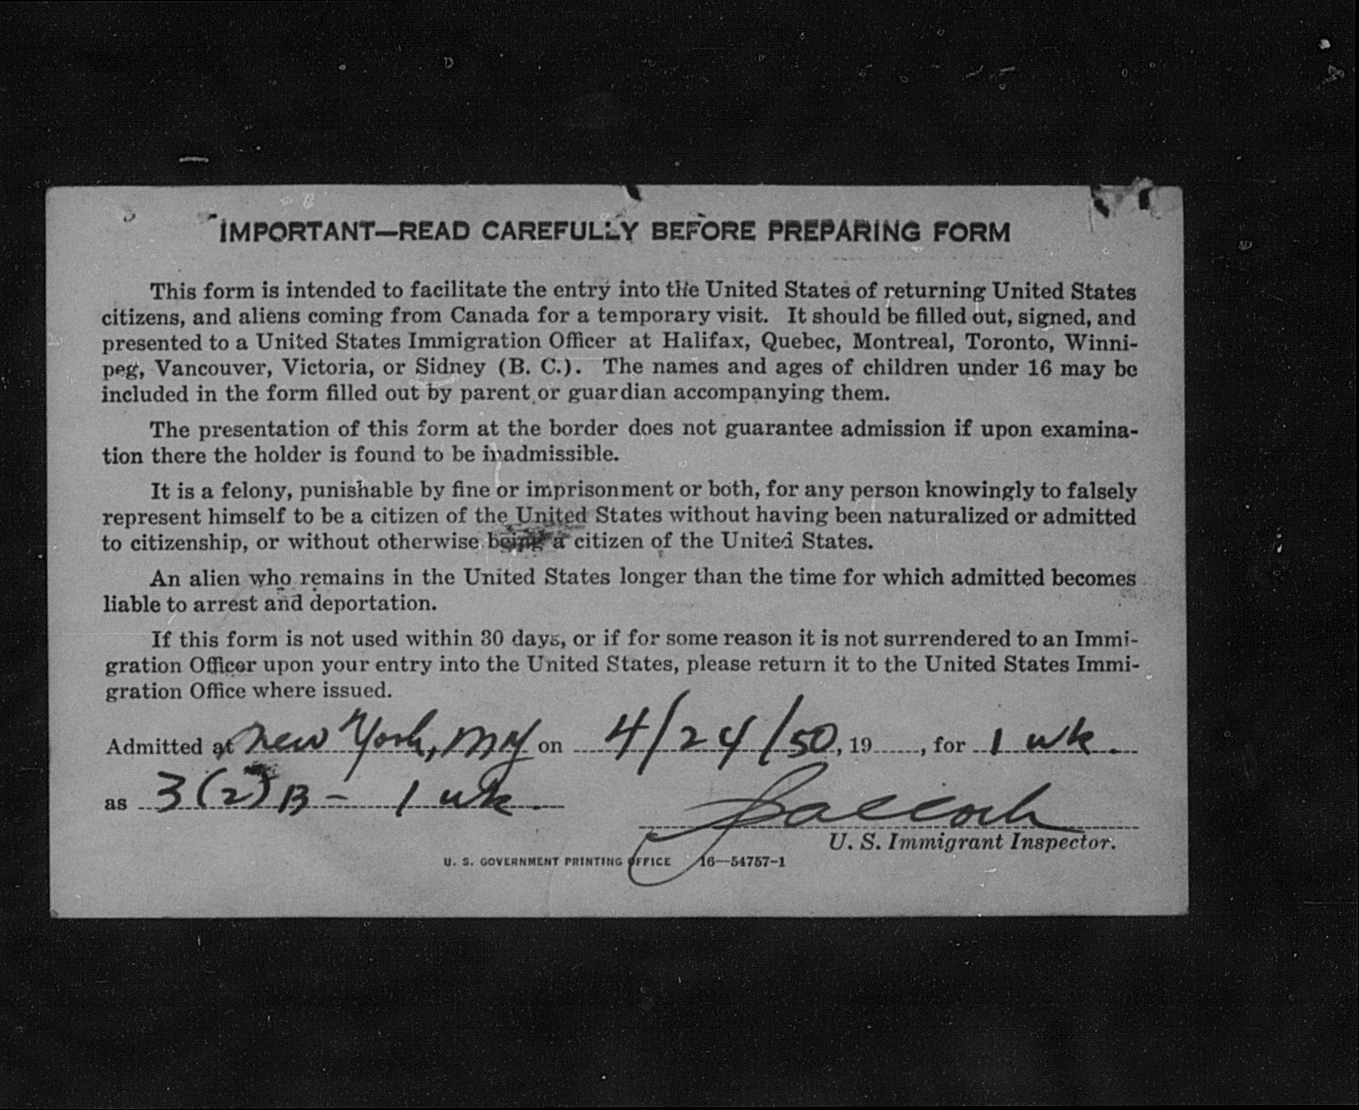 IMPORTANT—READ CAREFULLY BEFORE PREPARING FORM
This form is intended to facilitate the entry into the United States of returning United States
citizens, and aliens coming from Canada for a temporary visit. It should be filled out, signed, and
presented to a United States Immigration Officer at Halifax, Quebec, Montreal, Toronto, Winni-
peg, Vancouver, Victoria, or Sidney (B. C.). The names and ages of children under 16 may be
included in the form filled out by parent or guardian accompanying them.
The presentation of this form at the border does not guarantee admission if upon examina-
tion there the holder is found to be inadmissible.
It is a felony, punishable by fine or imprisonment or both, for any person knowingly to falsely
represent himself to be a citizen of the United States without having been naturalized or admitted
to citizenship, or without otherwise being a citizen of the United States.
An alien who remains in the United States longer than the time for which admitted becomes
liable to arrest and deportation.
If this form is not used within 30 days, or if for some reason it is not surrendered to an Immi-
gration Officer upon your entry into the United States, please return it to the United States Immi-
gration Office where issued.
Admitted at New York, NY on 4/24/50, 19......, for 1 wk.
as 3(2)B - 1 wk.
U. S. Immigrant Inspector.
U. S. GOVERNMENT PRINTING OFFICE 16—54757-1